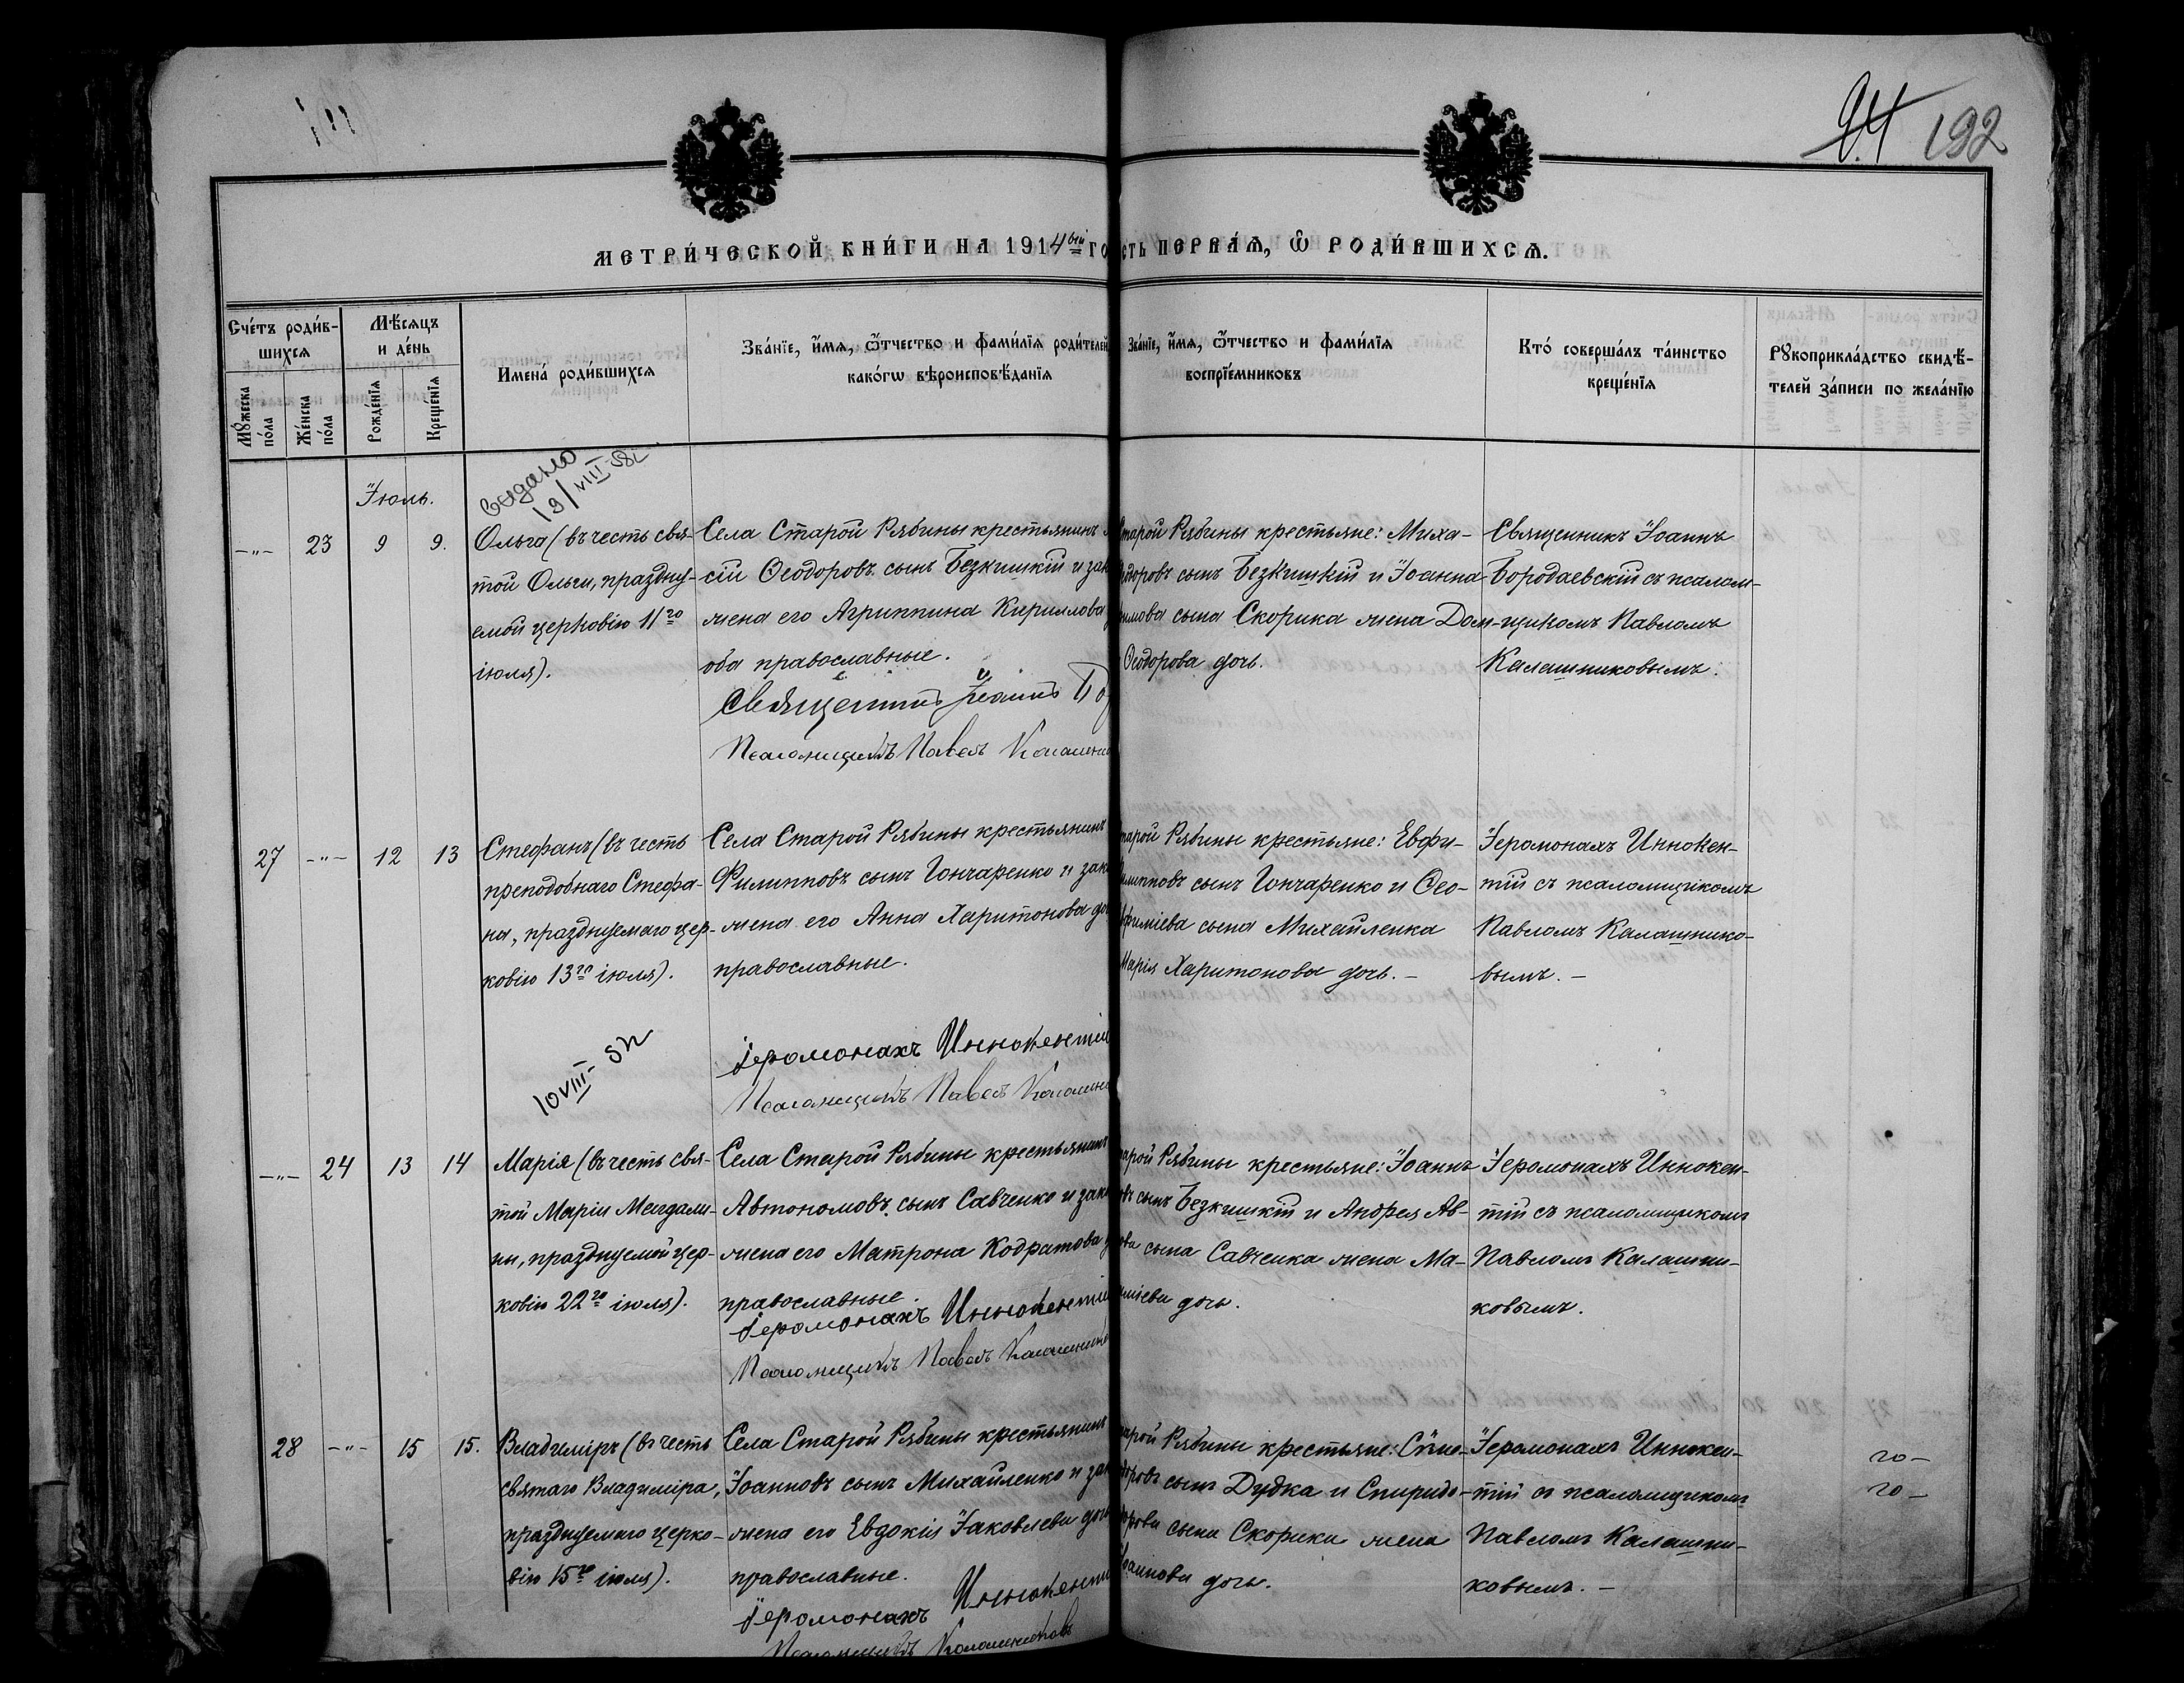 94 192
МЕТРИ́ЧЕСКОЙ КНИ́ГИ НА 1914вый ГО
СТЬ ПЕРВАѦ, Ѿ РОДИ́ВШИХСѦ.
Сче́тъ роди́в-
шихсѧ
Мꙋ́жеска по́ла
Же́нска по́ла
Мѣ́сѧцъ
и де́нь
Рожде́нїѧ
Креще́нїѧ
Имена́ роди́вшихсѧ
Зва́нїе, и́мѧ, ѻ҆́тчество и фами́лїѧ роди́телей
како́гѡ вѣроисповѣ́данїѧ
Зва́нїе, и́мѧ, ѻ҆́тчество и фами́лїѧ
воспрїе́мниковъ
Кто́ соверша́лъ та́инство
креще́нїѧ
Рꙋкоприкла́дство свидѣ́-
телей за́писи по жела́нїю
Іюль.
выдано
19/VIII-58
-"- 23 9 9.
Ольга (въ честь свя-
той Ольги, праздну-
емой церковію 11го
іюля).
Села Старой Рябины крестьянинъ
сій Ѳеодоровъ сынъ Безкишкій и зак
жена его Агриппина Кириллова
оба православные.
Священникъ Іоаннъ Бо
Псаломщикъ Павелъ Калашни
тарой Рябины крестьяне: Миха-
одоровъ сынъ Безкишкій и Іоанна
имова сына Скорика жена Дом-
Ѳеодорова дочь.
Священникъ Іоаннъ
Бородаевскій съ псалом-
щикомъ Павломъ
Калашниковымъ.
27 -"- 12 13
Стефанъ (въ честь
преподобнаго Стефа-
на, празднуемаго цер-
ковію 13го іюля).
Села Старой Рябины крестьянинъ
Филипповъ сынъ Гончаренко и зак
жена его Анна Харитонова до
православные.
Іеромонахъ Иннокентій
Псаломщикъ Павелъ Калашни
тарой Рябины крестьяне: Евфи-
илипповъ сынъ Гончаренко и Ѳео-
фиміева сына Михайленка
Марія Харитонова дочь. -
Іеромонахъ Инноке́н-
тій съ псаломщикомъ
Павломъ Калашнико-
вымъ. -
10 VIII- 52
-"- 24 13 14
Марія (въ честь свя-
той Маріи Магдали-
ны, празднуемой цер-
ковію 22го іюля).
Села Старой Рябины крестьянинъ
Автономовъ сынъ Савченко и зак
жена его Матрона Кодратова
православные.
Іеромонахъ Иннокентій
Псаломщикъ Павелъ Калашни
арой Рябины крестьяне: Іоаннъ
въ сынъ Безкишкій и Андрея Ав-
ова сына Савченка жена Ма-
міева дочь.
Іеромонахъ Иннокен-
тій съ псаломщикомъ
Павломъ Калашни-
ковымъ.
28 -"- 15 15.
Владиміръ (въ честь
святаго Владиміра,
празднуемаго церко-
вію 15го іюля).
Села Старой Рябины крестьянинъ
Іоанновъ сынъ Михайленко и зак
жена его Евдокія Іаковлева дочь
православные.
Іеромонахъ Иннокенти
Псаломщикъ Калашниковъ
арой Рябины крестьяне:
доровъ сынъ Дудка и Спиридо-
орова сына Скорика жена
Іоаннова дочь.
Іеромонахъ Иннокен-
тій съ псаломщикомъ
Павломъ Калашни-
ковымъ. -
го -
го -